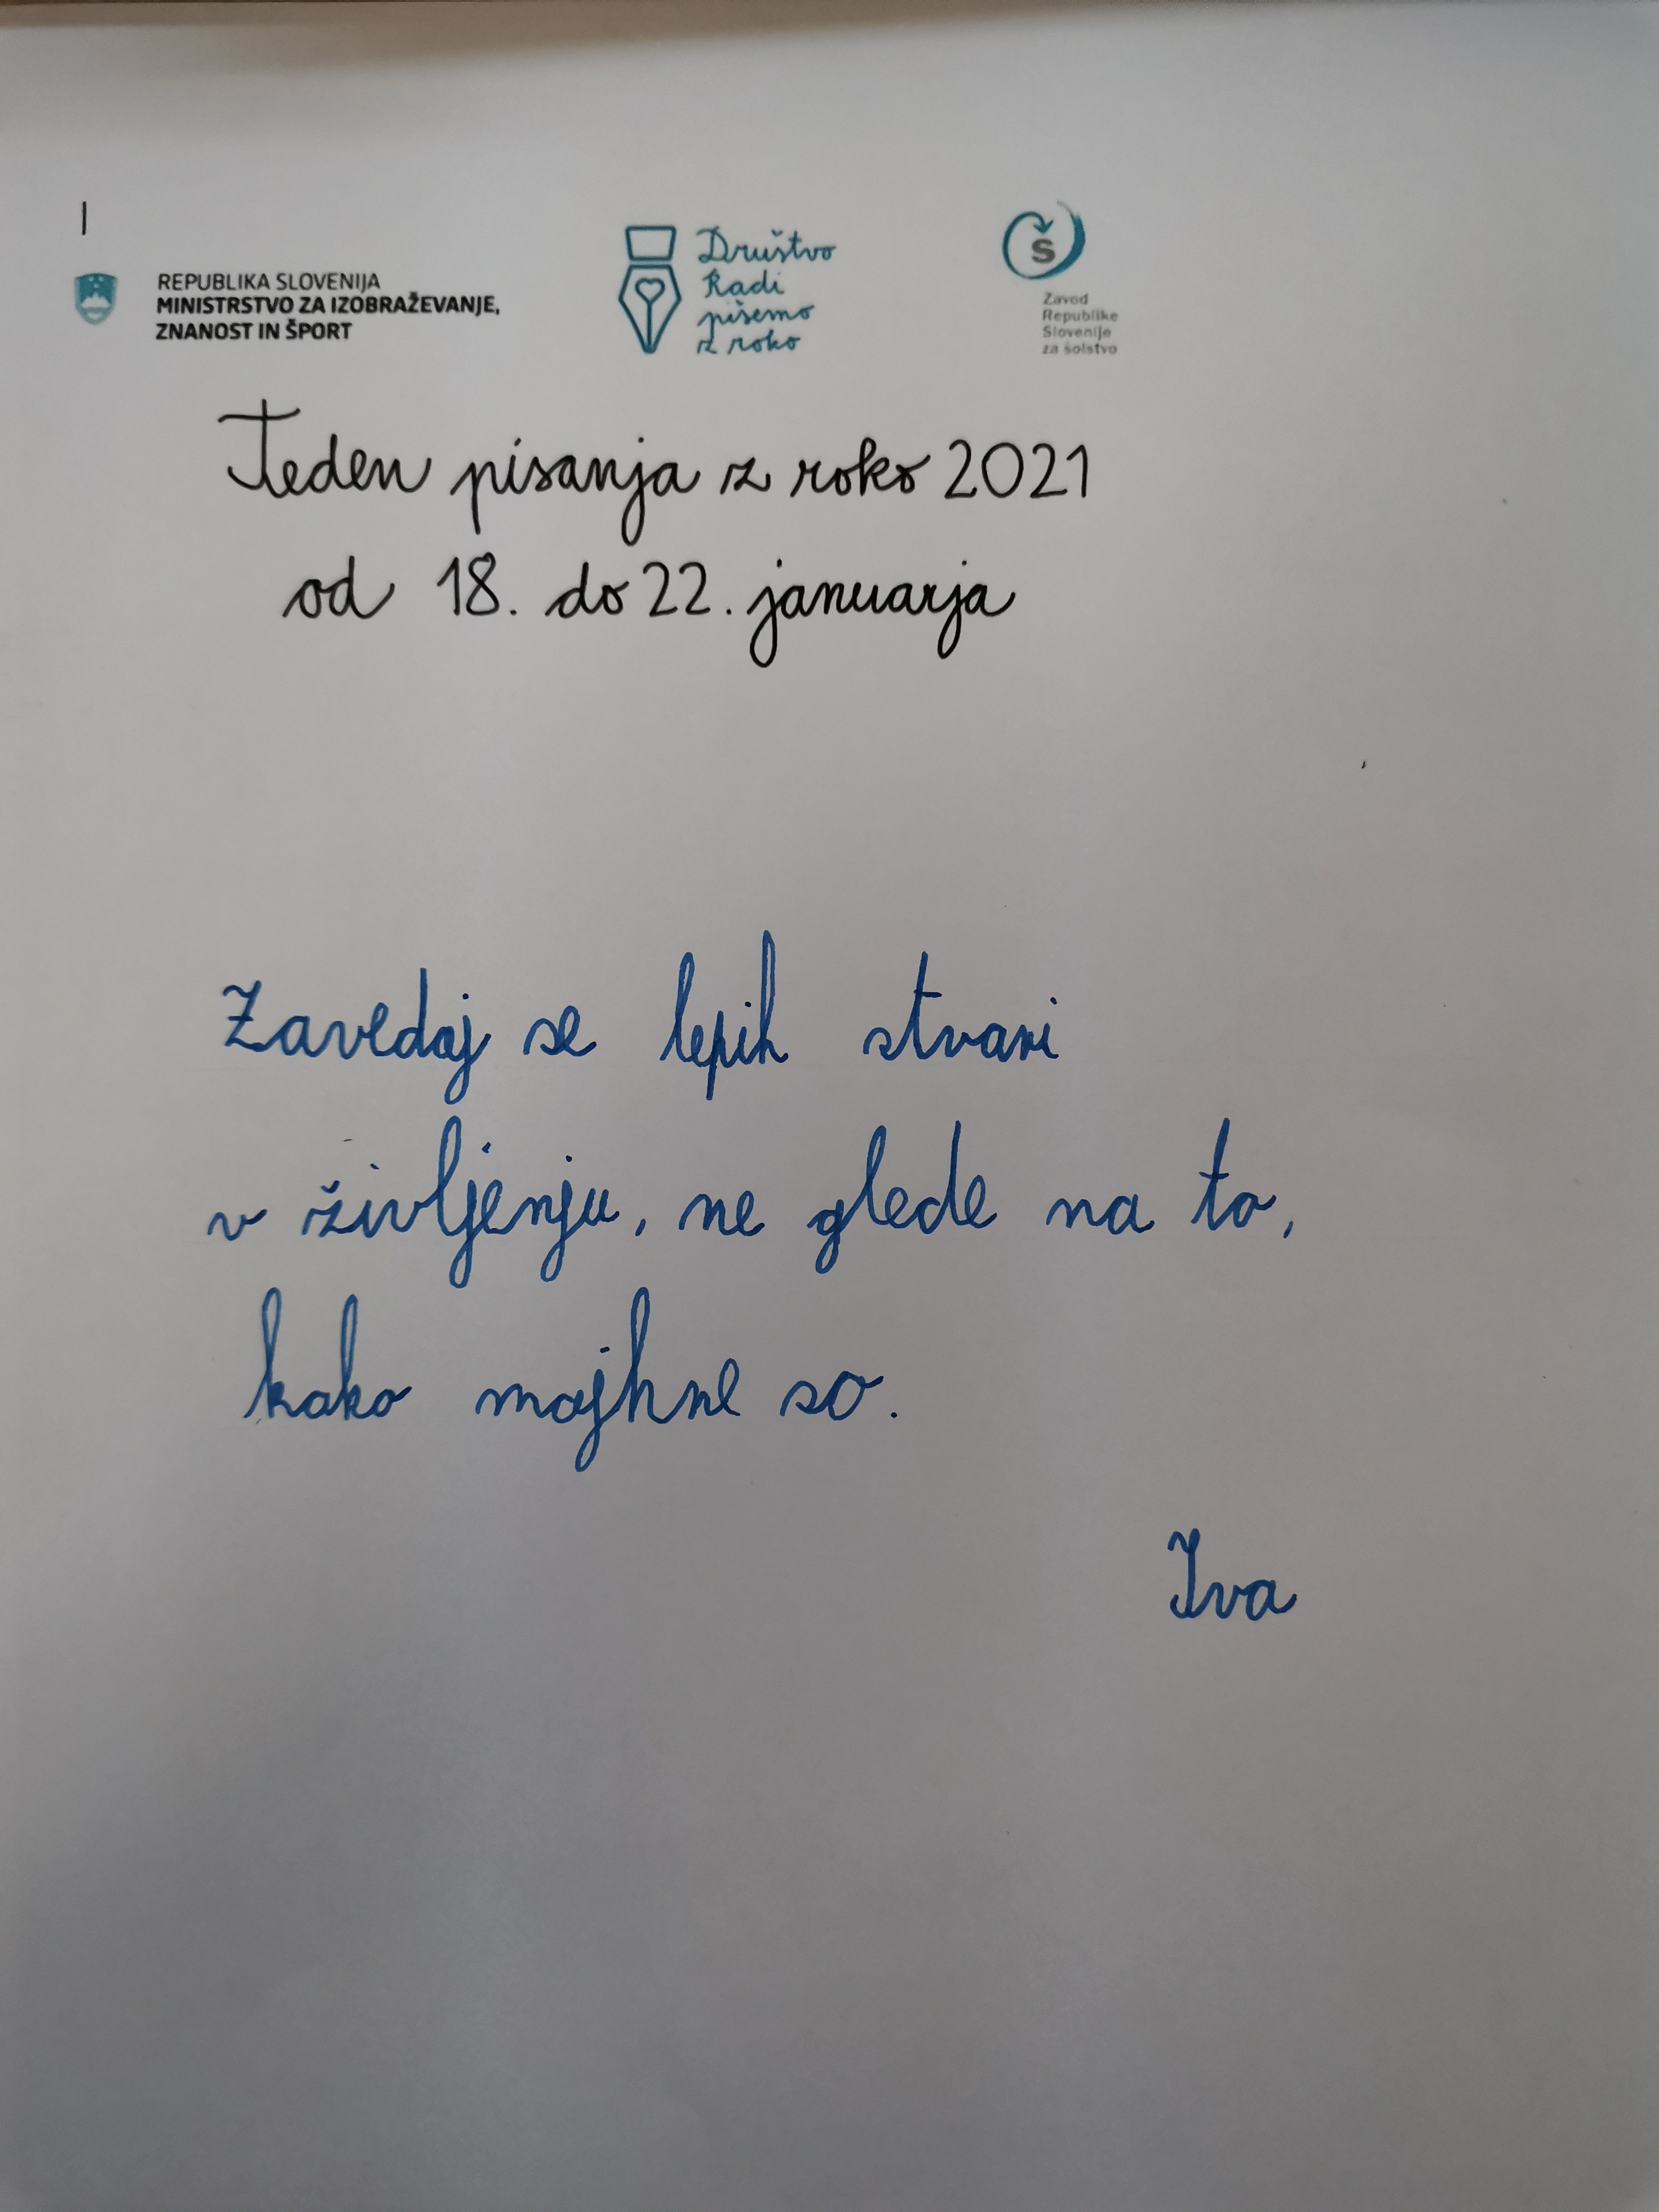 REPUBLIKA SLOVENIJA
MINISTRSTVO ZA IZOBRAŽEVANJE,
ZNANOST IN ŠPORT
Društvo
Radi
pišemo
z roko
Š
Zavod
Republike
Slovenije
za šolstvo
Teden pisanja z roko 2021
od 18. do 22. januarja
Zavedaj se lepih stvari
v življenju, ne glede na to,
kako majhne so.
Iva